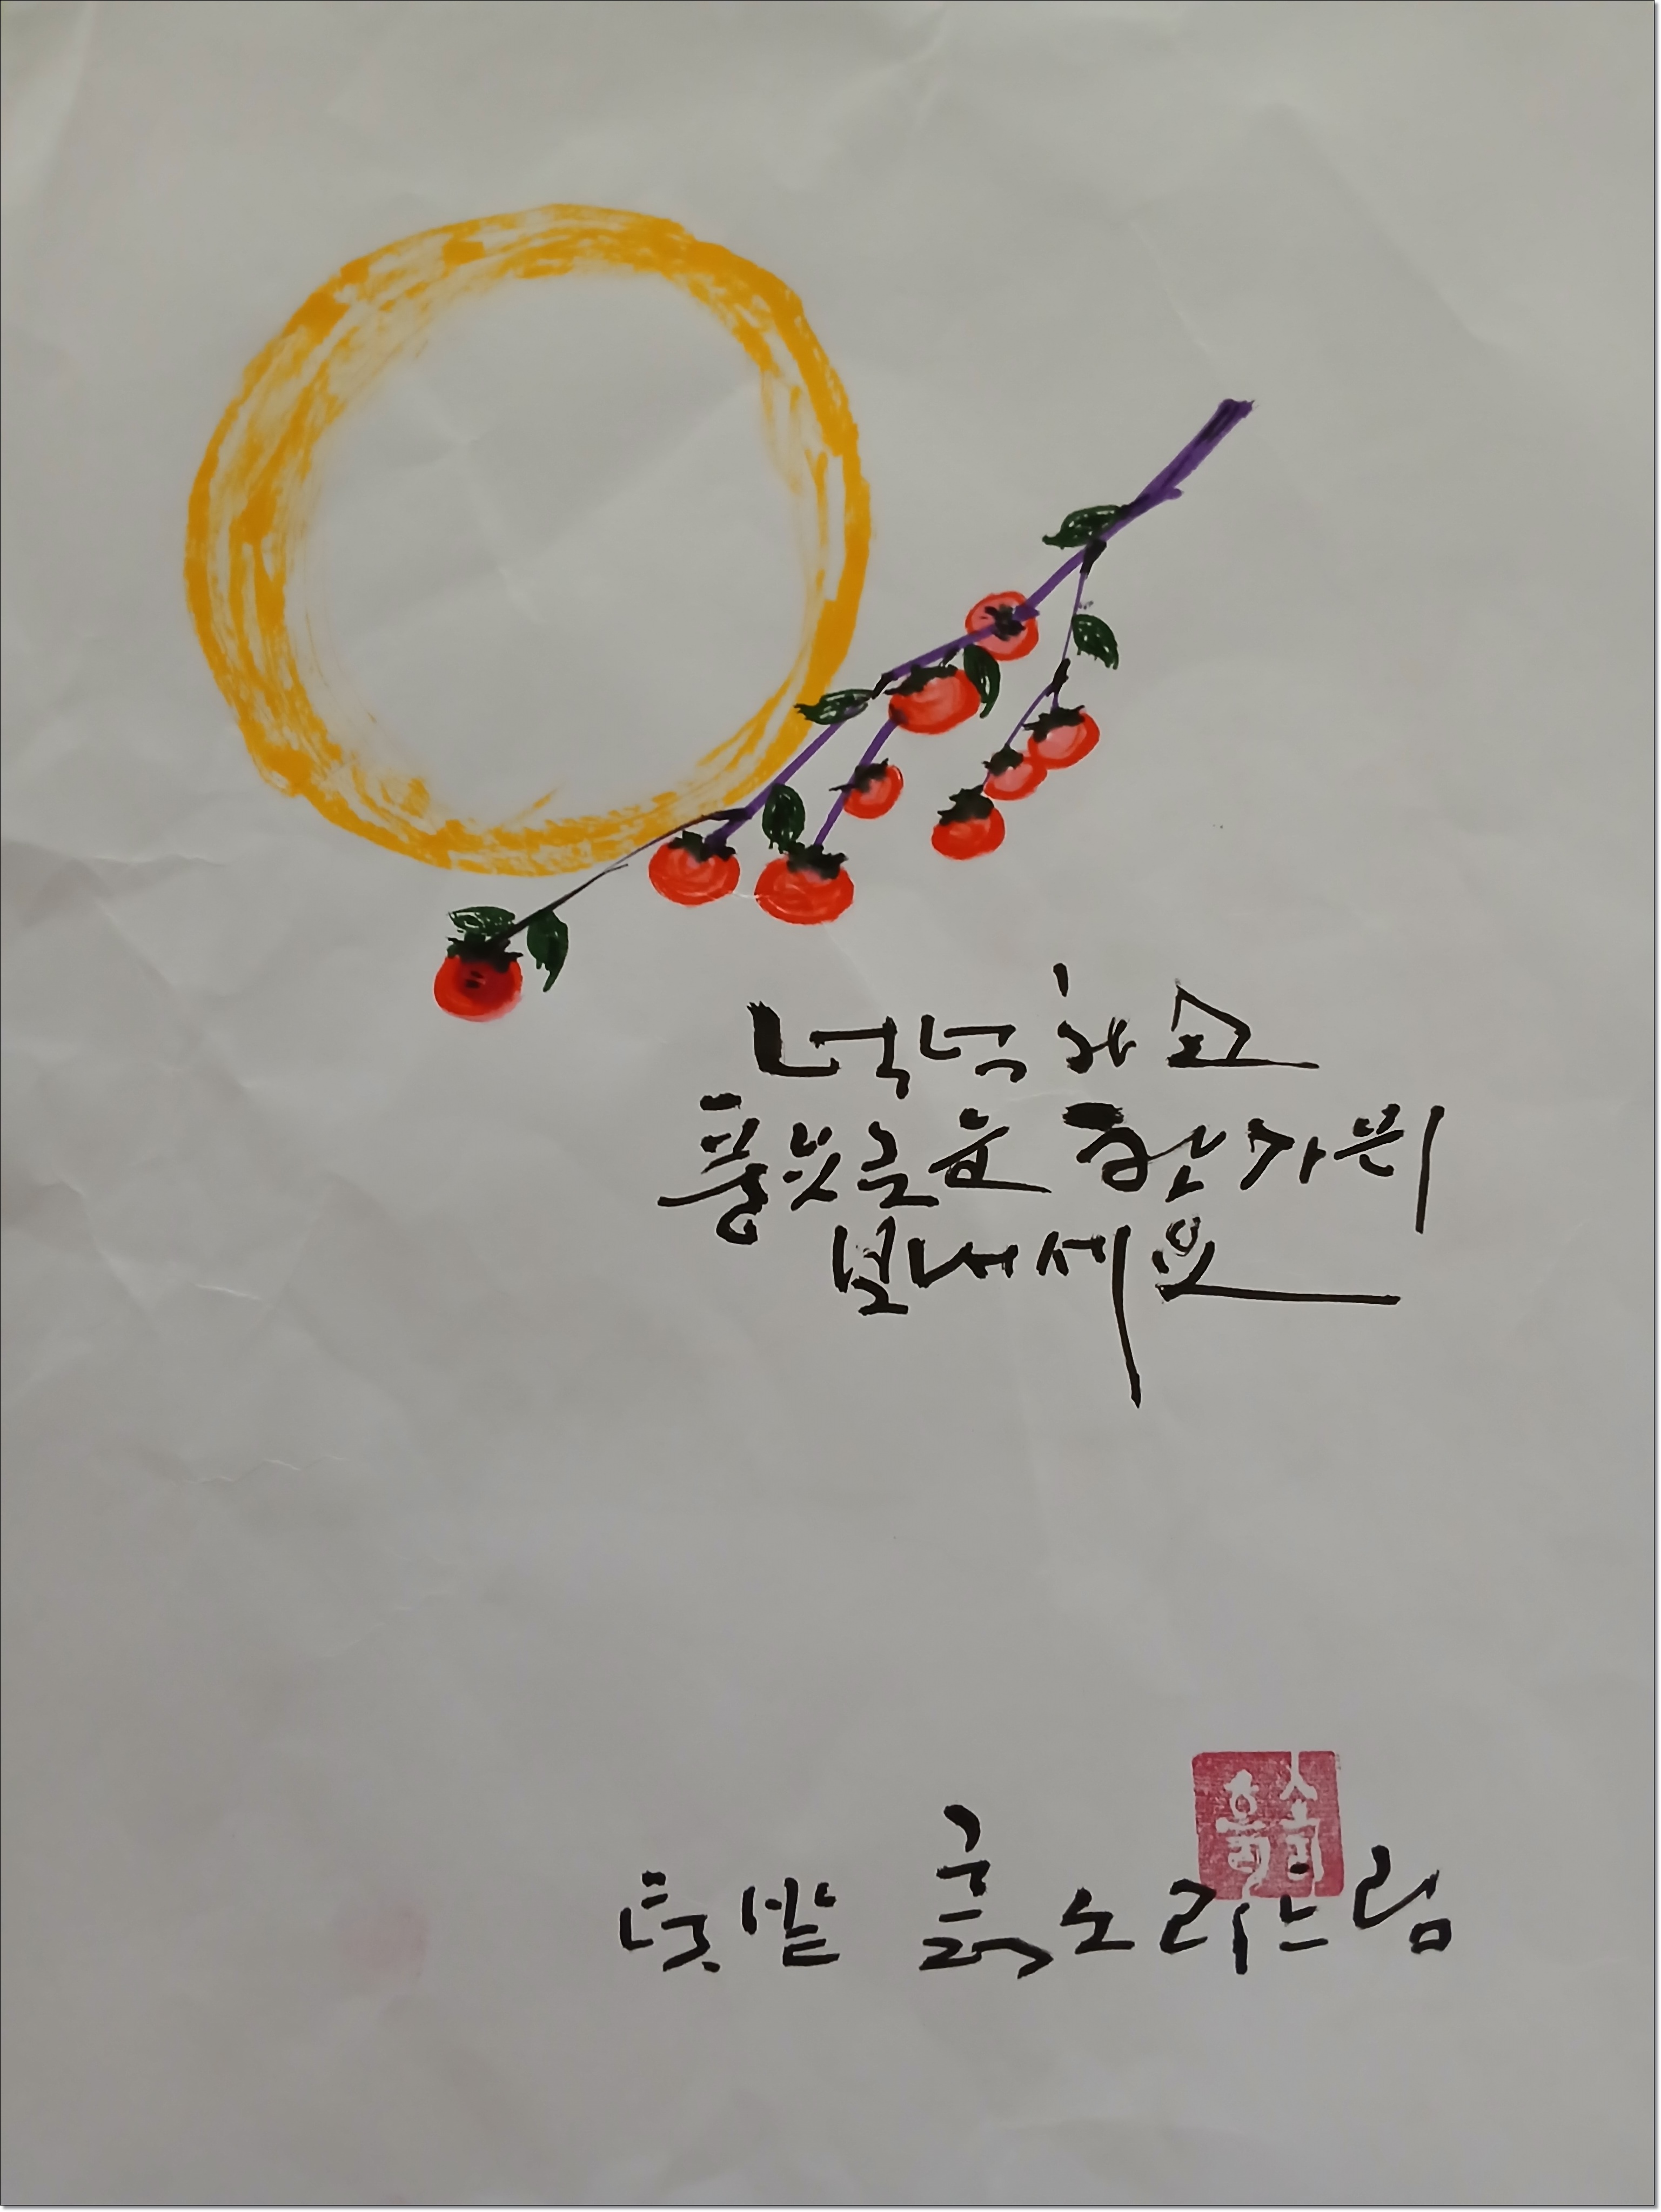 넉넉하고
풍요로운 한가위
보내세요
텃밭 흙소리 드림